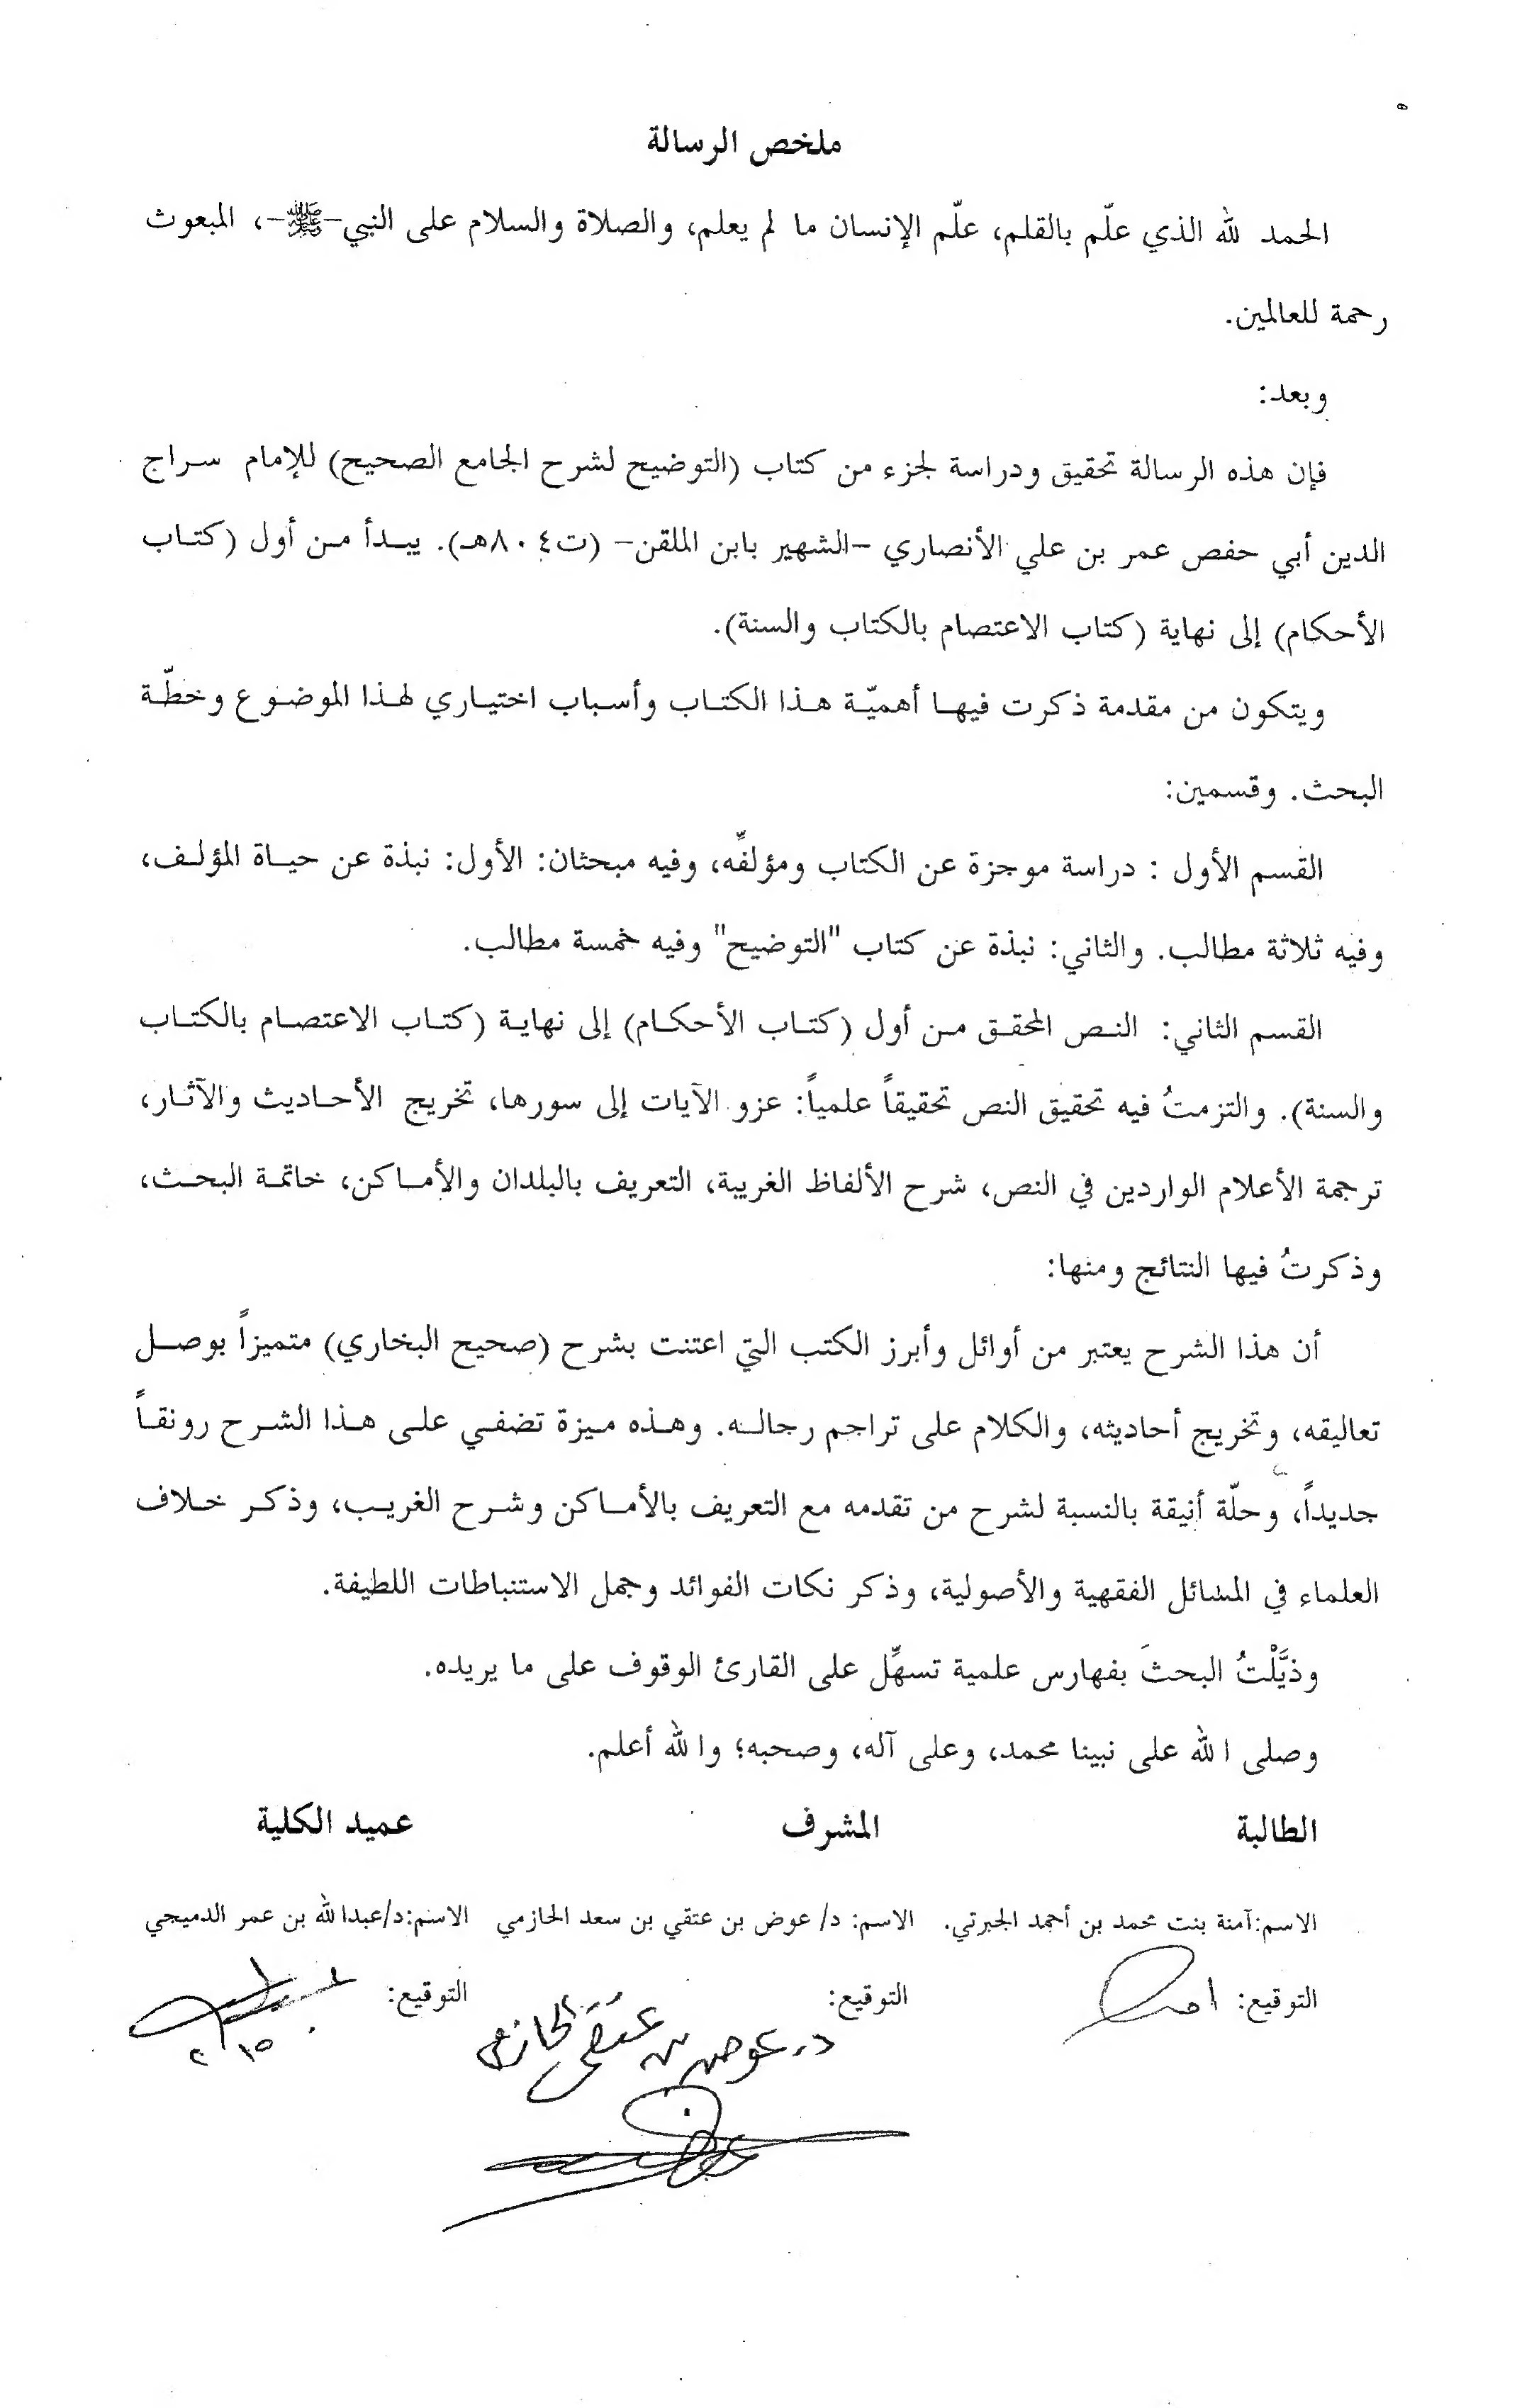 ملخص الرسالة
الحمد لله الذي علّم بالقلم، علّم الإنسان ما لم يعلم، والصلاة والسلام على النبي-ﷺ-، المبعوث
رحمة للعالمين.
وبعد:
فإن هذه الرسالة تحقيق ودراسة لجزء من كتاب (التوضيح لشرح الجامع الصحيح) للإمام سراج
الدين أبي حفص عمر بن علي الأنصاري -الشهير بابن الملقن- (ت٨٠٤هـ). يبدأ من أول (كتاب
الأحكام) إلى نهاية (كتاب الاعتصام بالكتاب والسنة).
ويتكون من مقدمة ذكرت فيها أهميّة هذا الكتاب وأسباب اختياري لهذا الموضوع وخطّة
البحث. وقسمين:
القسم الأول : دراسة موجزة عن الكتاب ومؤلفِّه، وفيه مبحثان: الأول: نبذة عن حياة المؤلف،
وفيه ثلاثة مطالب. والثاني: نبذة عن كتاب "التوضيح" وفيه خمسة مطالب.
القسم الثاني: النص المحقق من أول (كتاب الأحكام) إلى نهاية (كتاب الاعتصام بالكتاب
والسنة). والتزمتُ فيه تحقيق النص تحقيقاً علمياً: عزو الآيات إلى سورها، تخريج الأحاديث والآثار،
ترجمة الأعلام الواردين في النص، شرح الألفاظ الغريبة، التعريف بالبلدان والأماكن، خاتمة البحث،
وذكرتُ فيها النتائج ومنها:
أن هذا الشرح يعتبر من أوائل وأبرز الكتب التي اعتنت بشرح (صحيح البخاري) متميزاً بوصل
تعاليقه، وتخريج أحاديثه، والكلام على تراجم رجاله. وهذه ميزة تضفي على هذا الشرح رونقاً
جديداً، وحلّة أنيقة بالنسبة لشرح من تقدمه مع التعريف بالأماكن وشرح الغريب، وذكر خلاف
العلماء في المسائل الفقهية والأصولية، وذكر نكات الفوائد وجمل الاستنباطات اللطيفة.
وذيَّلْتُ البحثَ بفهارس علمية تسهِّل على القارئ الوقوف على ما يريده.
وصلى الله على نبينا محمد، وعلى آله، وصحبه؛ والله أعلم.
الطالبة المشرف عميد الكلية
الاسم:آمنة بنت محمد بن أحمد الجبرتي. الاسم: د/ عوض بن عتقي بن سعد الحازمي الاسم:د/عبدالله بن عمر الدميجي
التوقيع: التوقيع: التوقيع:
د. عوض بن عتقي الحازمي